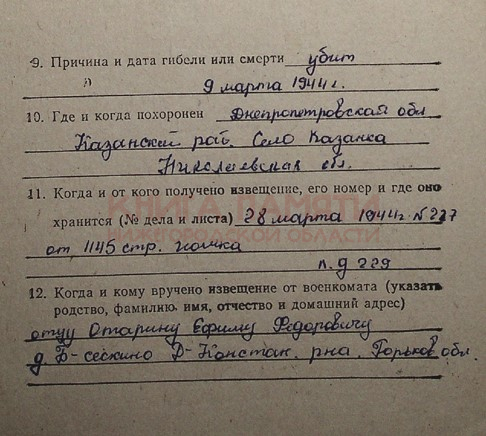 9. Причина и дата гибели или смерти убит
9 марта 1944 г.
10. Где и когда похоронен Днепропетровская обл
Казанский рай. Село Казанка
Николаевская обл.
11. Когда и от кого получено извещение, его номер и где оно
КНИГА ПАМЯТИ
хранится (№ дела и листа) 28 марта 1944г. N 227
НИЖЕГОРОДСКОЙ ОБЛАСТИ
от 1145 стр. полка
л. д 229
12. Когда и кому вручено извещение от военкомата (указать
родство, фамилию, имя, отчество и домашний адрес)
отцу Отарину Ефиму Федоровичу
д. Б-сескино Д-Констак. рна. Горьков обл.